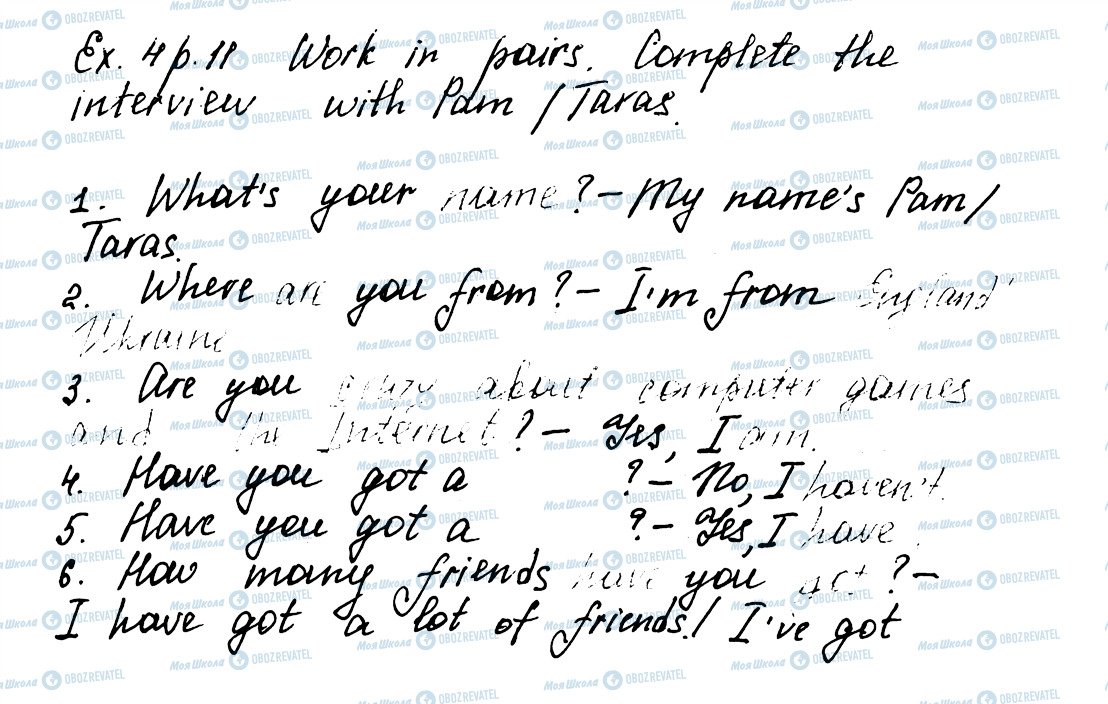 Ex. 4 p. 11 Work in pairs. Complete the
interview with Pam / Taras.
1. What's your name? – My name's Pam /
Taras.
2. Where are you from? – I'm from England /
Ukraine
3. Are you crazy about computer games
and the Internet? – Yes, I am.
4. Have you got a ? – No, I haven't.
5. Have you got a ? – Yes, I have.
6. How many friends have you got? –
I have got a lot of friends. / I've got